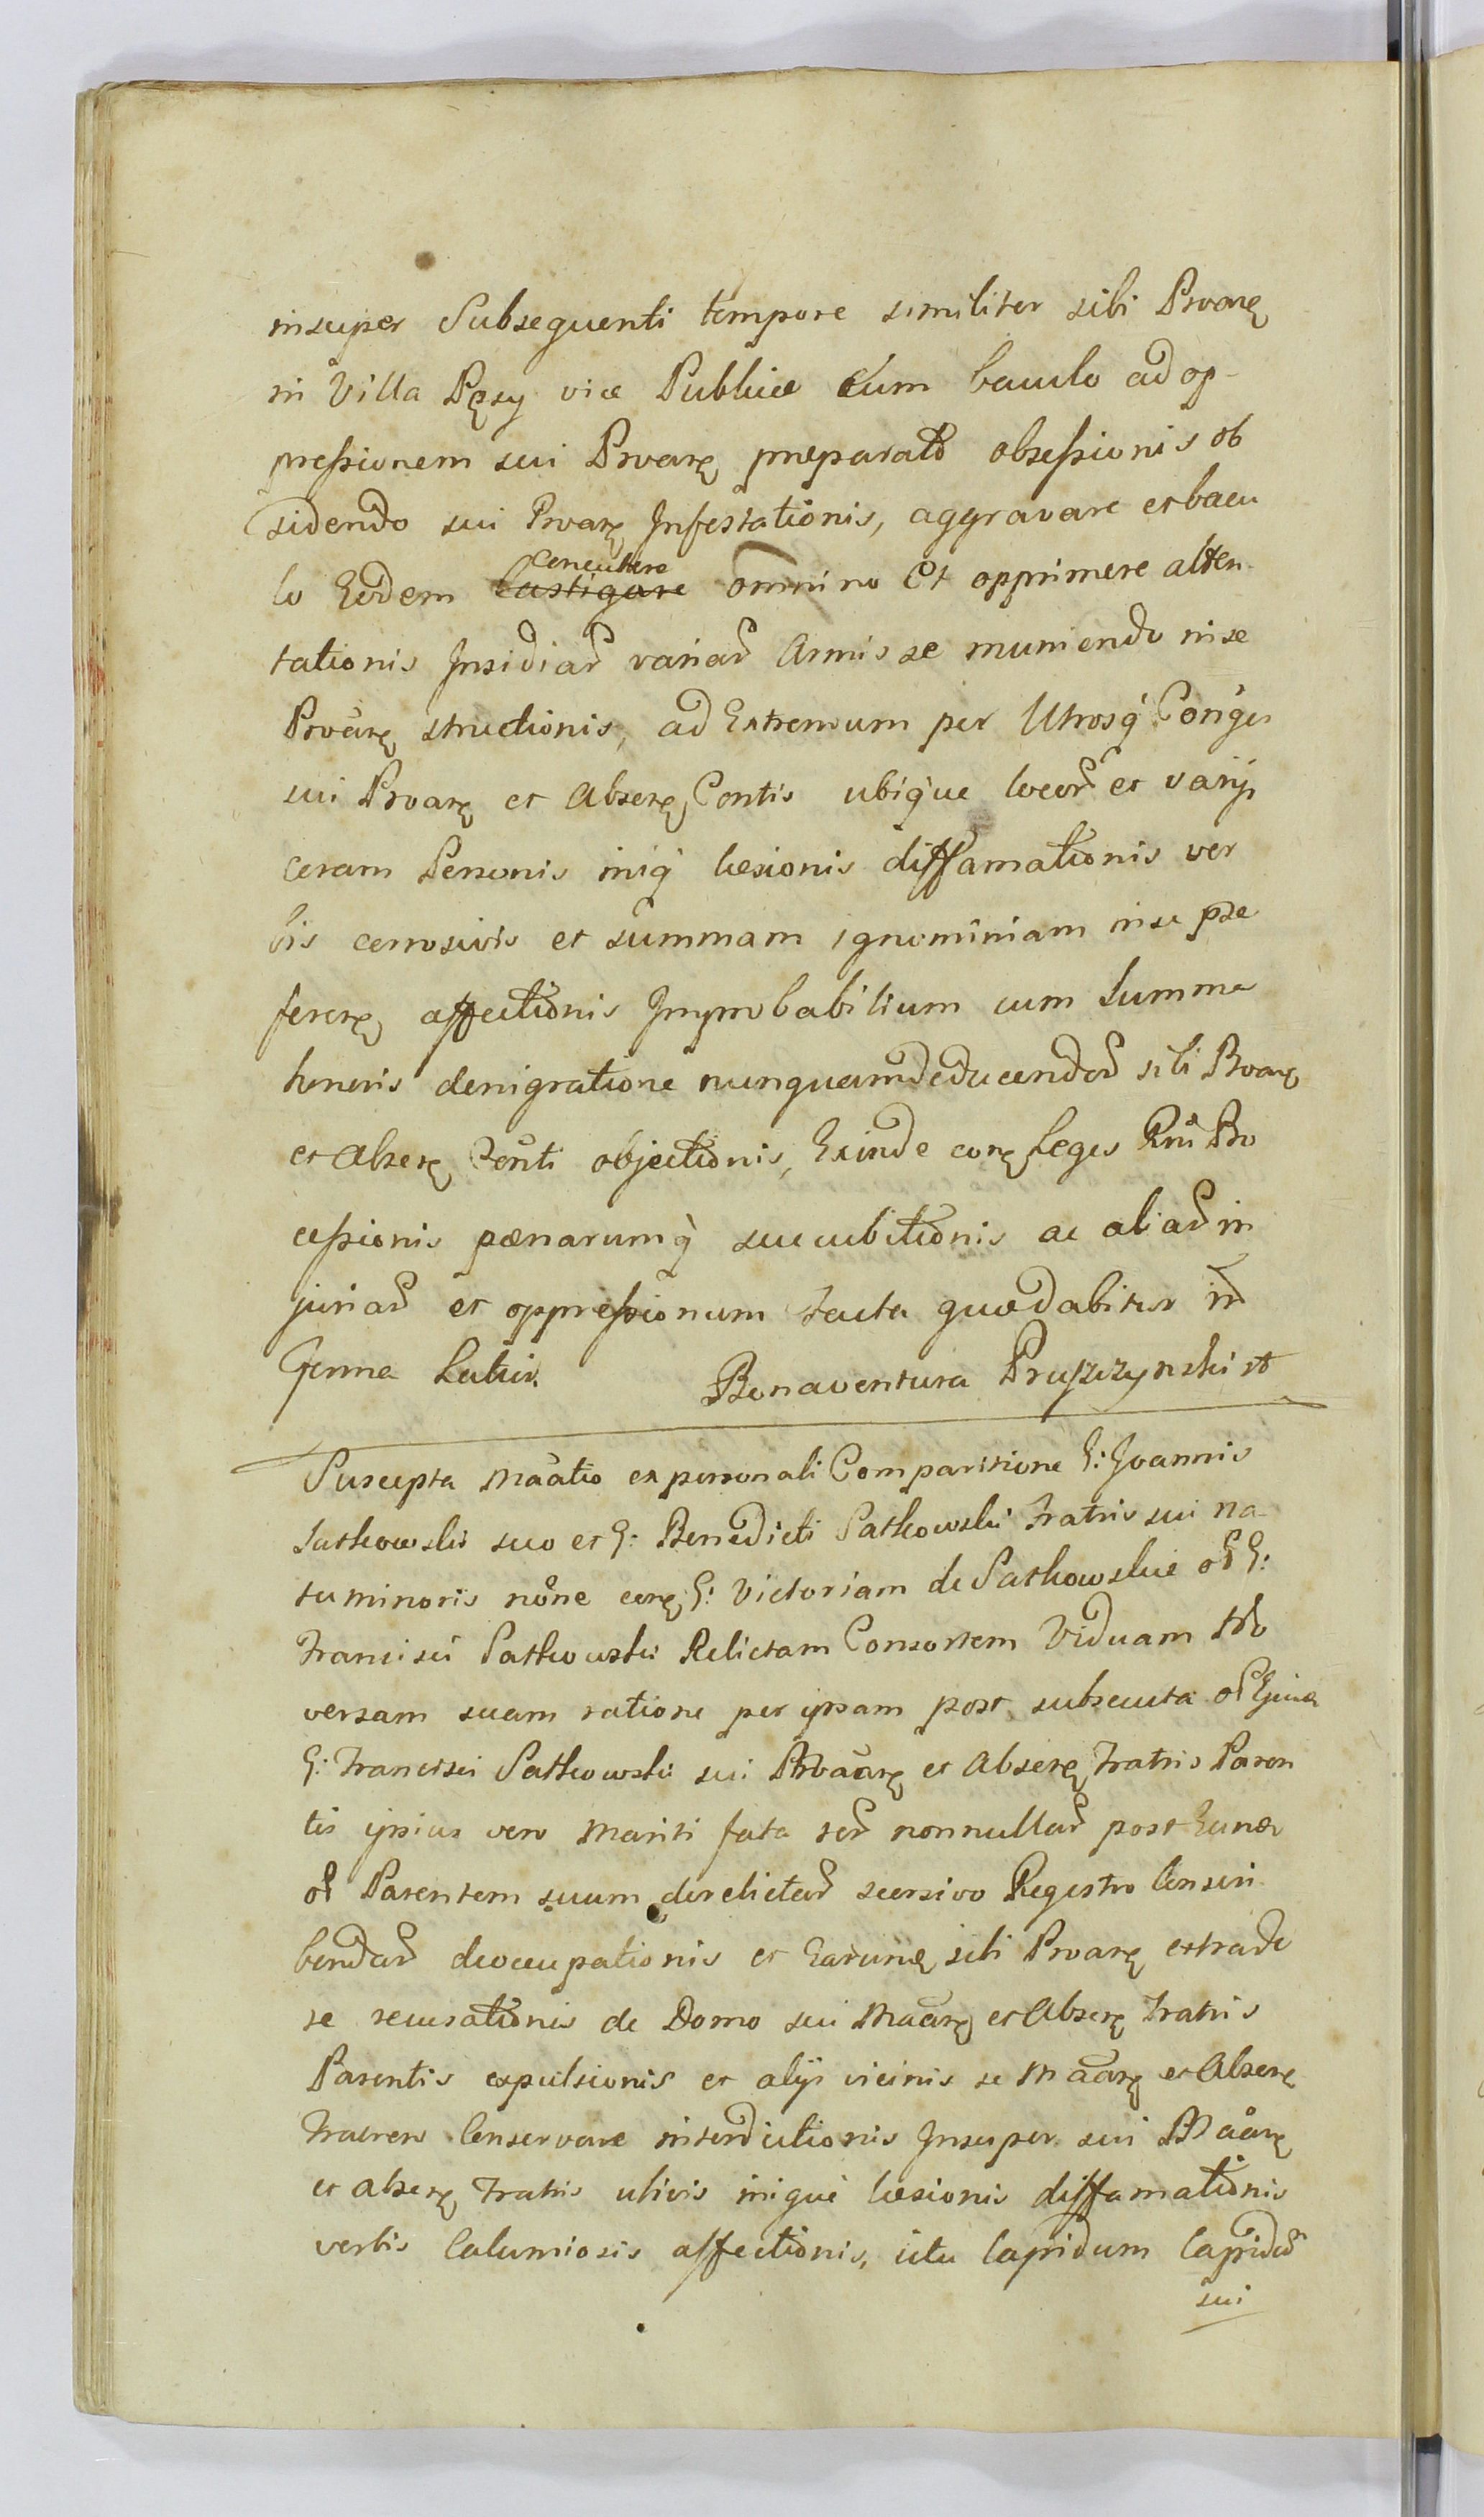 insuper Subsequenti tempore similiter sibi Proarę
in Villa Pęsy viæ Publicæ Cum baculo ad op-
pressionem sui Proarę præparato obsessionis ob
sidendo sui Proarę Infestationis, aggravare et bacu
lo Eodem concutere castigare omnino Et opprimere atten-
tationis Insidiar variar Armis se muniendo in se
Proarę structionis, ad Extremum per Utrosq Conges
sui Proarę et Absenę Contis ubique locor et varijs
coram Personis iniq læsionis diffamationis ver
bis corrosivis et summam ignominiam in se præ
ferenę affectionis Improbabilium cum Summa
honoris denigratione nunquam deducendor sibi Proarę
et Absenę Conti objectionis, Exinde conę Leges Rni Pro
cessionis pænarumq succubitionis ac aliar in
juriar et oppressionum facta quæ dabitur in
Termo Latius. Bonaventura Pruszzynski
Suscepta Maatio ex personali Comparitione G: Joannis
Satkowski suo et G: Benedicti Satkowski Fratris sui na-
tu minoris nõne conę G: Victoriam de Satkowskie G:
Francisci Satkowski Relictam Consortem Viduam
versam suam ratione per ipsam post subsecuta
G: Francisci Satkowski sui et Absenę Fratris Paren
tis ipsius vero Mariti fata rer nonnullar post
Parentem suum derelictar seorsivo Regestro Conscri-
bendar deoccupationis et Earunę sibi Proarę extrade
re recusationis de Domo sui Maarę et Absenę Fratris
Parentis expulsionis et alijs vicinis se Maarę et Absenę
Fratrem Conservare interdictionis Insuper sui Maarę
et Absenę Fratris ubivis inique læsionis diffamationis
verbis Calumiosis affectionis, ictu lapidum lapidor
sui